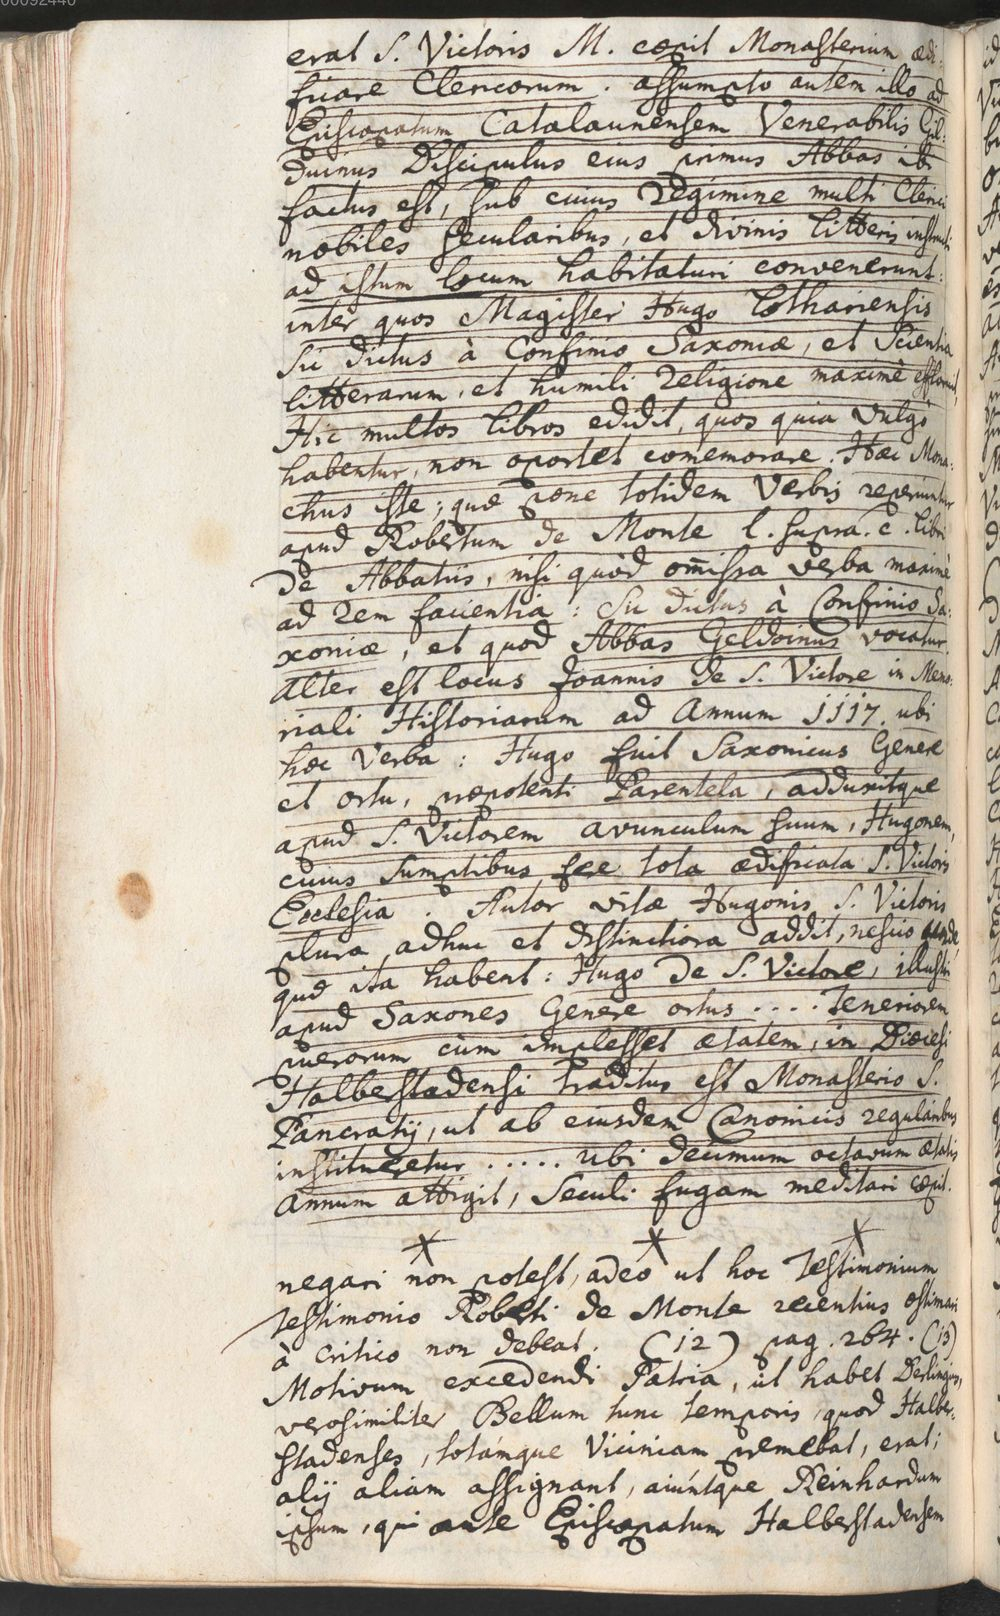 00092440
erat S. Victoris M. cæpit Monasterium ædi:
ficare Clericorum. assumpto autem illo ad
Episcopatum Catalaunensem Venerabilis Gil:
duinus Discipulus eius primus Abbas ibi
factus est, sub cuius Regimine multi Clerici
nobiles secularibus, et divinis litteris instructi
ad istum locum habitaturi convenerunt:
inter quos Magister Hugo Lothariensis
Sic dictus à Confinio Saxoniæ, et Scientia
litterarum, et humili Religione maximè effloruit,
Hic multos libros edidit, quos quia vulgò
habentur, non oportet comemorare. Hæc Mona:
chus iste; quæ pæne totidem Verbis reperiuntur
apud Robertum de Monte l. supra. c. libri
De Abbatiis, nisi quòd omissa verba maximè
ad rem facientia: Sic dictus à Confinio Sa:
xoniæ, et quod Abbas Geldoinus vocatur.
alter est locus Joannis de S. Victore in Memo:
riali Historiarum ad Annum 1117. ubi
hæc Verba: Hugo fuit Saxonicus Genere
et ortu, præpotenti Parentela, adduxitque
apud S. Victorem avunculum suum, Hugonem,
cuius sumptibus fere tota ædificata S. Victoris
Ecclesia. Autor vitæ Hugonis S. Victoris
plura adhuc et distinctiora addit, nescio
quæ ita habent: Hugo de S. Victore, illustri
apud Saxones Genere ortus .... teneriorem
puerorum cùm implesset ætatem, in Diœcesi
Halberstadensi traditus est Monasterio S.
Pancratij, ut ab eiusdem Canonicis regularibus
institueretur ..... ubi decimum octavum ætatis
Annum attigit, Seculi fugam meditari cæpit.
X X X
negari non potest, adeo ut hoc Testimonium
Testimonio Roberti de Monte recentius æstimari
à critico non debeat. (12) pag. 264. (13)
Motivum excedendi Patria, ut habet Derlingius,
verosimiliter Bellum tunc temporis, quod Halber:
stadenses, totámque Viciniam premebat, erat;
alij aliam assignant, aiúntque Reinhardum
ipsum, qui ante Episcopatum Halberstadensem